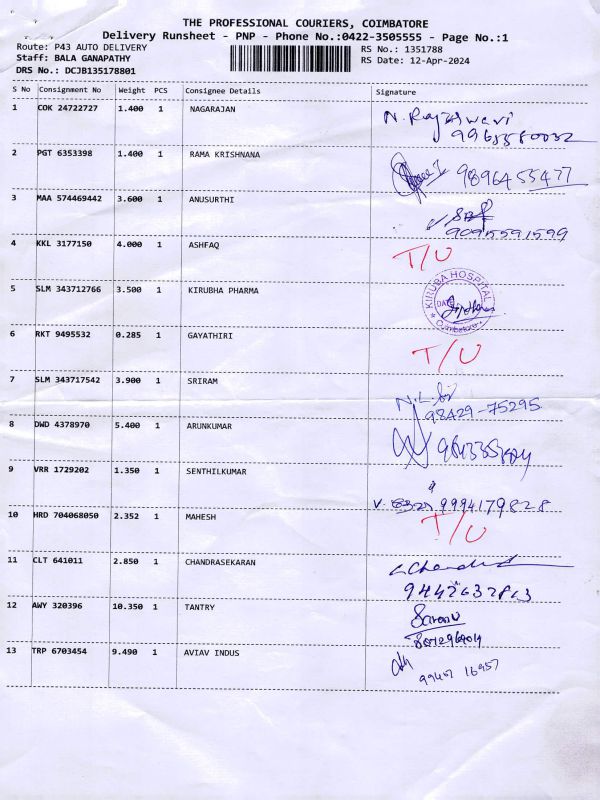 THE PROFESSIONAL COURIERS, COIMBATORE
Delivery Runsheet - PNP - Phone No.:0422-3505555 - Page No.:1
Route: P43 AUTO DELIVERY RS No.: 1351788
Staff: BALA GANAPATHY RS Date: 12-Apr-2024
DRS No.: DCJB135178801
S No Consignment No Weight PCS Consignee Details Signature
1 COK 24722727 1.400 1 NAGARAJAN N. Rajeswari
2 PGT 6353398 1.400 1 RAMA KRISHNANA 9896455477
3 MAA 574469442 3.600 1 ANUSURTHI
9095591599
4 KKL 3177150 4.000 1 ASHFAQ T/U
5 SLM 343712766 3.500 1 KIRUBHA PHARMA KIRUBA HOSPITAL
DATE
Coimbatore
6 RKT 9495532 0.285 1 GAYATHIRI T/U
7 SLM 343717542 3.900 1 SRIRAM N.L.
98429-75295
8 DWD 4378970 5.400 1 ARUNKUMAR
9 VRR 1729202 1.350 1 SENTHILKUMAR 9994179828
10 HRD 704068050 2.352 1 MAHESH T/U
11 CLT 641011 2.850 1 CHANDRASEKARAN
12 AWY 320396 10.350 1 TANTRY
13 TRP 6703454 9.490 1 AVIAV INDUS
16957